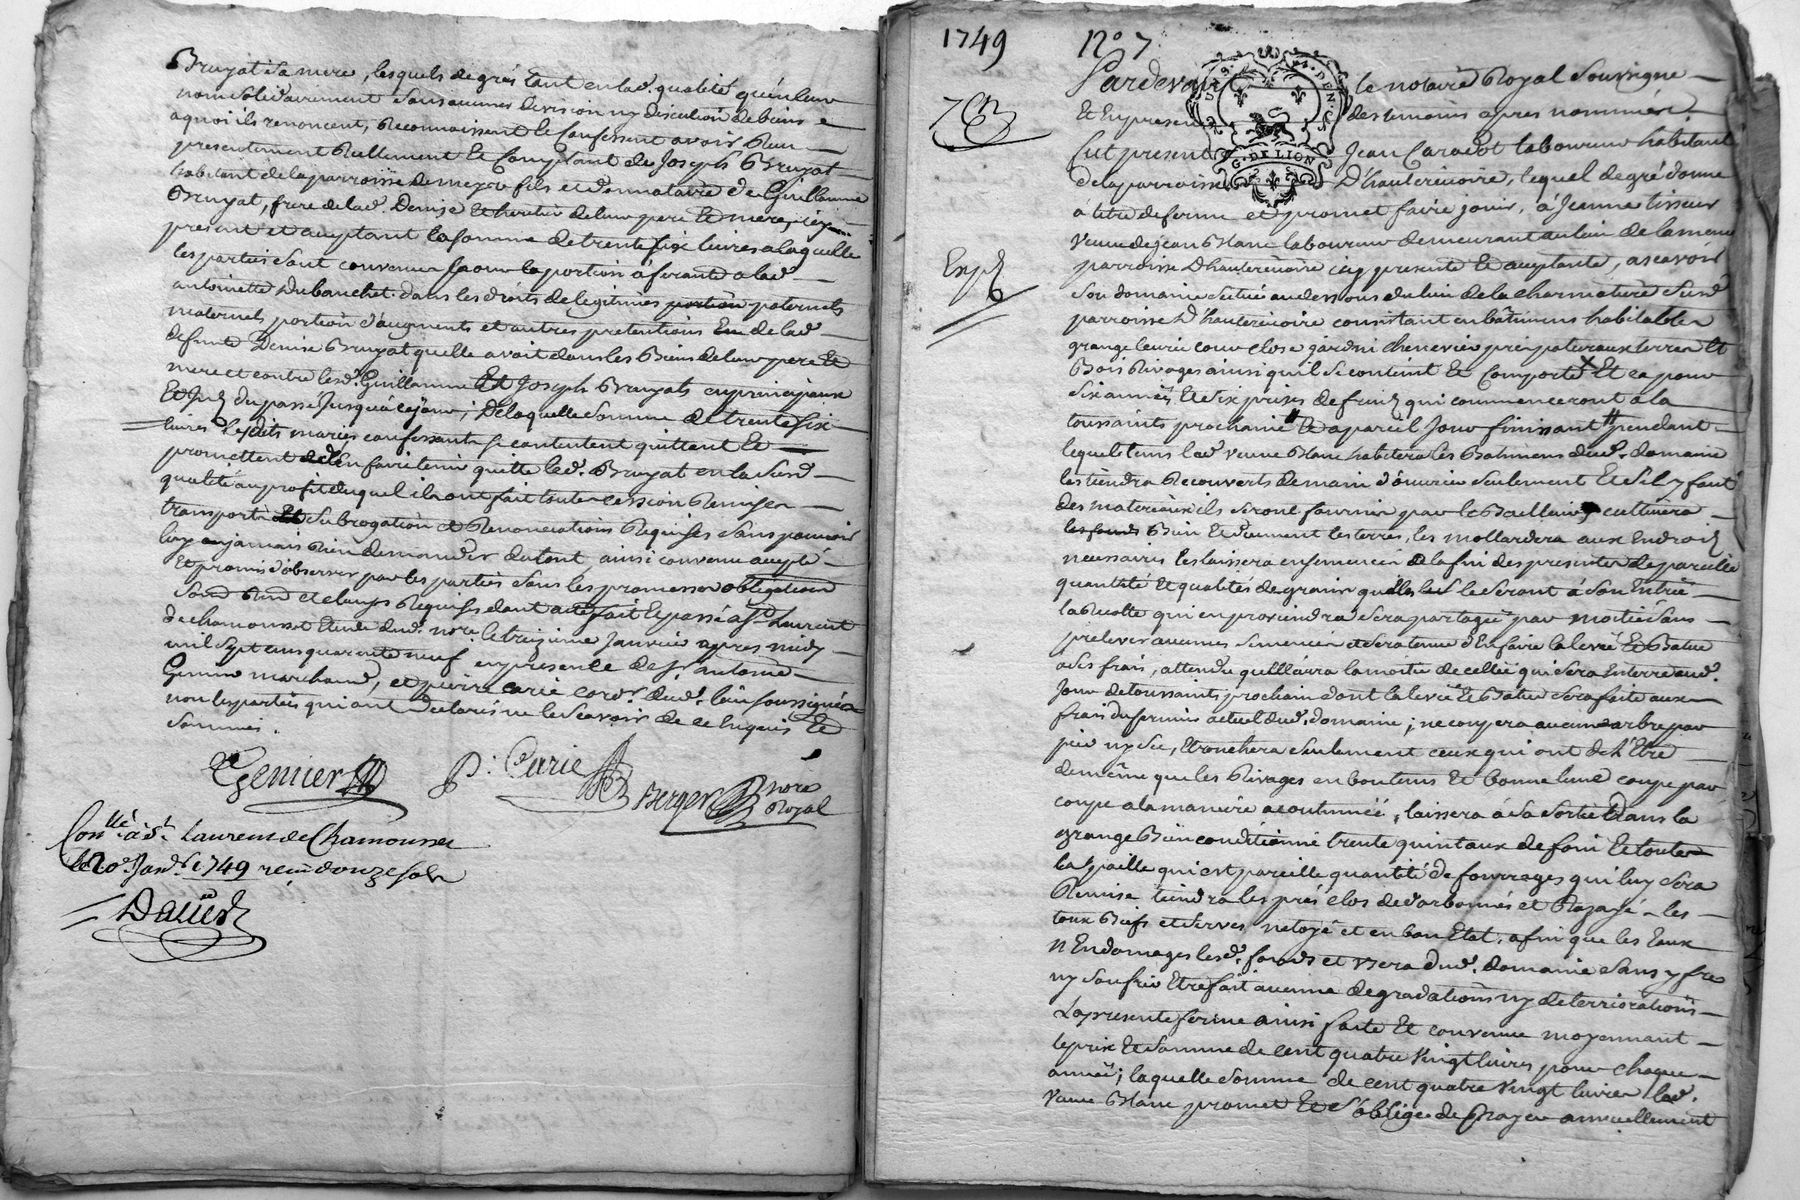 Bruyat sa mere, lesquels de grés tant en lad. qualité qu'en leur
nom solidairement sans aucunes division ny discution de biens
a quoi ils renoncent, Reconnaissent Et Confessent avoir Reçu
presentement Reellement Et Comptant de Joseph Bruyat
habitant de la parroisse de meys fils et donnataire de Guillaume
Bruyat, frere de lad. Denise Et heritier de leur pere Et mere, icy
present et acceptant la somme de trente six livres a laquelle
les parties sont convenues pour la portion aferante a lad.
antoinette Dubanchet dans les droits de legitimes portion paternels
maternels portion d'augments et autres pretentions En de lad.
defunte Denise Bruyat quelle avoit dans les Biens de leur pere Et
mere et contre lesd. Guillaume Et Joseph Bruyats en principaux
Et du passé Jusqu'a ce jour; De laquelle somme de trente six
livres lesdits mariés confessants se contentent quittent Et
promettent d'en faire tenir quitte led. Bruyat en la susd.
qualité au profit duquel ils ont fait toutes cession Remises
transports Et subrogation et Renonciations Requises sans pouvoir
luy en jamais Rien demander du tout, ainsi convenu accepté
Et promis d'observer par les parties sous les promesses obligation
Soud Rend et clauses Requises dont acte fait Et passé a St Laurent
de chamousset Etude dud. nore. le treizieme Janvier apres midy
mil sept cens quarante neuf en presence de sr. antoine
Genier marchand, et pierre carie cord. dud. lieu soussignés
non les parties qui ont declarés ne le scavoir de ce Enquis Et
sommés.
Genier P. Carie Berger nore Royal
Conllé. à St. Laurens de Chamousset
le 20e Janer 1749 reçu douze sols
1749 No 7
Pardevant le notaire Royal Soussigné
Et En presence des temoins apres nommés
Fut present Jean Caradot laboureur habitant
de la parroisse D'hauterivoire, lequel de gré donne
à titre de ferme et promet faire jouir, à Jeanne tisseur
veuve de jean Blanc laboureur demeurant au lieu de la meme
parroisse D'hauterivoire icy presente Et acceptante, ascavoir
son domaine situé au dessous du lieu de la charmatiere susd.
parroisse D'hauterivoire consistant en bâtimens habitables
grange Ecurie cour close jardin cheneviere pré paturaux terres Et
Bois Rivages ainsi qu'il se contient Et Comporte Et ce pour
six années Et six prises de fruits qui commenceront a la
toussaints prochaine Et a pareil Jour finissant pendant
lequel tems lad. veuve Blanc habitera les Bâtimens dud. domaine
les tiendra Recouverts de main d'ouvrier seulement Et s'il y faut
des materiaux ils seront fournis par le Bailleur, cultivera
les fonds Bien Et dument les terres, les mollardera aux Endroits
necessaires les laissera ensemencés a la fin des presentes de pareille
quantité Et qualités de grains qu'elles luy le seront à son Entrée
la Recolte qui en proviendra sera partagée par moitié sans
prelever aucunes semences et sera tenue d'En faire la levée Et Batue
a ses frais, attendu qu'Elle aura la moitié de cellée qui sera En terre aud.
Jour de toussaints prochain dont la levée Et Batue sera faite aux
frais du fermier actuel dud. domaine; ne coupera aucuns arbre par
pied ny sec, Etronchera seulement ceux qui ont de l'Etre
de même que les Rivages en bon tems Et bonne lune coupe par
coupe a la manière acoutumée, laissera à sa sortie Dans la
grange Bien conditionné trente quintaux de foin Et toutes
la paille qui est pareille quantité de fourrages qui luy sera
Remise tiendra les prés clos de darbonnés et Razayé les
tous Biefs et serves netoyé et en bon Etat, afin que les Eaux
n'Endomages lesd. fonds et usera dud. domaine sans y fre
ny soufrir Etre fait aucune degradations ny deterriorations
La presente ferme ainsi faite Et convenue moyennant
le prix Et somme de cent quatre vingt livres pour chaque
année; laquelle somme de cent quatre vingt livres lad.
veuve Blanc promet Et s'oblige de Payer annuellement
G. DE LION